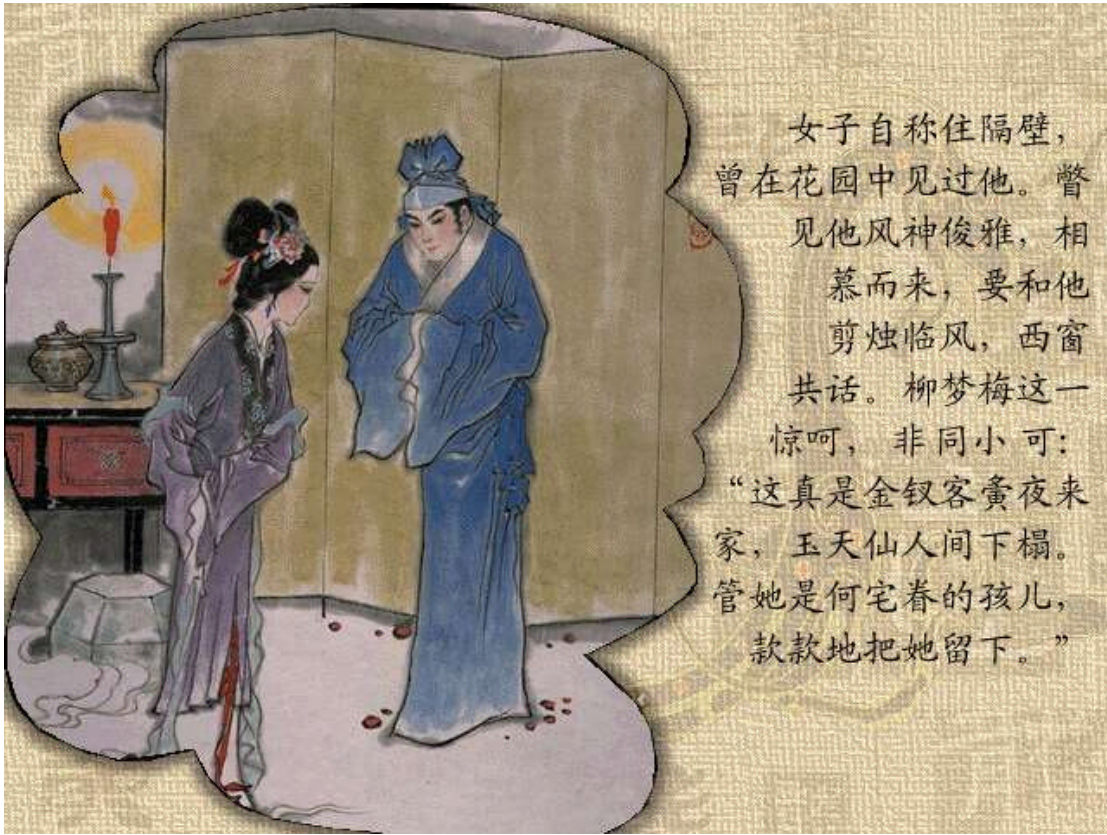 女子自称住隔壁，
曾在花园中见过他。瞥
见他风神俊雅，相
慕而来，要和他
剪烛临风，西窗
共话。柳梦梅这一
惊呵，非同小可：
“这真是金钗客夤夜来
家，玉天仙人间下榻。
管她是何宅眷的孩儿，
款款地把她留下。”